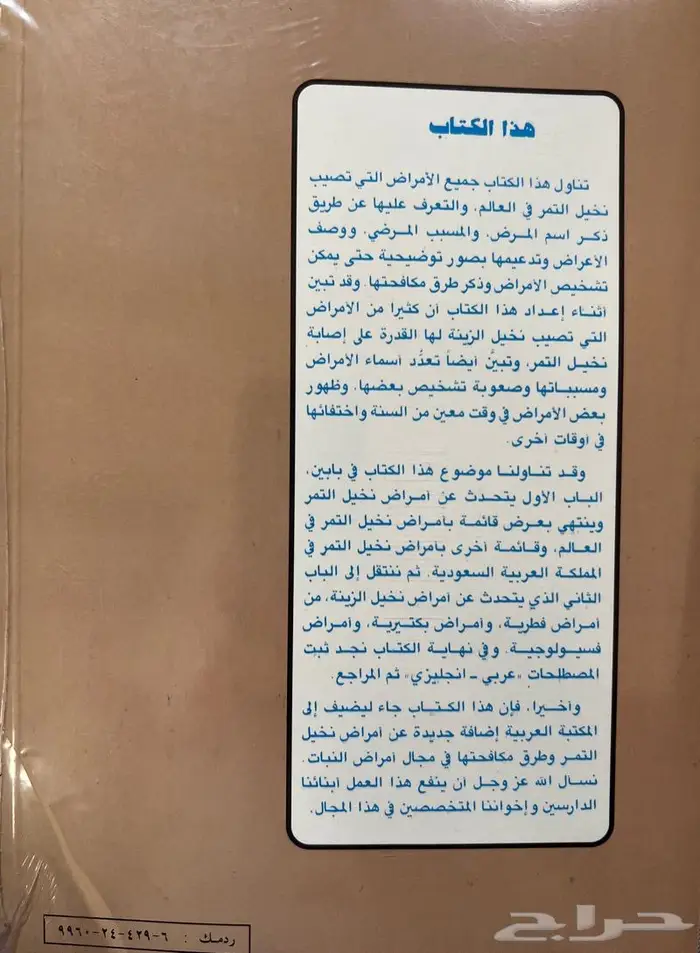 هذا الكتاب
تناول هذا الكتاب جميع الأمراض التي تصيب
نخيل التمر في العالم، والتعرف عليها عن طريق
ذكـر اسم المـرض، والمسبب المـرضي، ووصف
الأعراض وتدعيمها بصور توضيحية حتى يمكن
تشخيص الأمراض وذكر طرق مكافحتها. وقد تبين
أثناء إعداد هذا الكتاب أن كثيرا من الأمراض
التي تصيب نخيل الزينة لها القدرة على إصابة
نخيـل التمر، وتبيَّن أيضاً تعدُّد أسماء الأمراض
ومسبباتها وصعوبة تشخيص بعضها، وظهور
بعض الأمراض في وقت معين من السنة واختفائها
في أوقات أخرى.
وقـد تناولنـا موضوع هذا الكتاب في بابين،
الباب الأول يتحدث عن أمراض نخيل التمر
وينتهي بعرض قائمة بأمراض نخيل التمر في
العالم، وقائمة أخرى بأمراض نخيل التمر في
المملكة العربية السعودية. ثم ننتقل إلى الباب
الثاني الذي يتحدث عن أمراض نخيل الزينة، من
أمراض فطرية، وأمراض بكتيرية، وأمراض
فسيولوجية. وفي نهاية الكتاب نجد ثبت
المصطلحات «عربي ـ انجليزي» ثم المراجع.
وأخيـرا، فإن هذا الكتـاب جاء ليضيف إلى
المكتبة العربية إضافة جديدة عن أمراض نخيل
التمـر وطرق مكافحتها في مجال أمراض النبات.
نسأل الله عز وجـل أن ينفع هذا العمل أبنائنا
الدارسين وإخواننا المتخصصين في هذا المجال.
ردمـك : ٦-٤٢٩-٢٤-٩٩٦٠
حراج